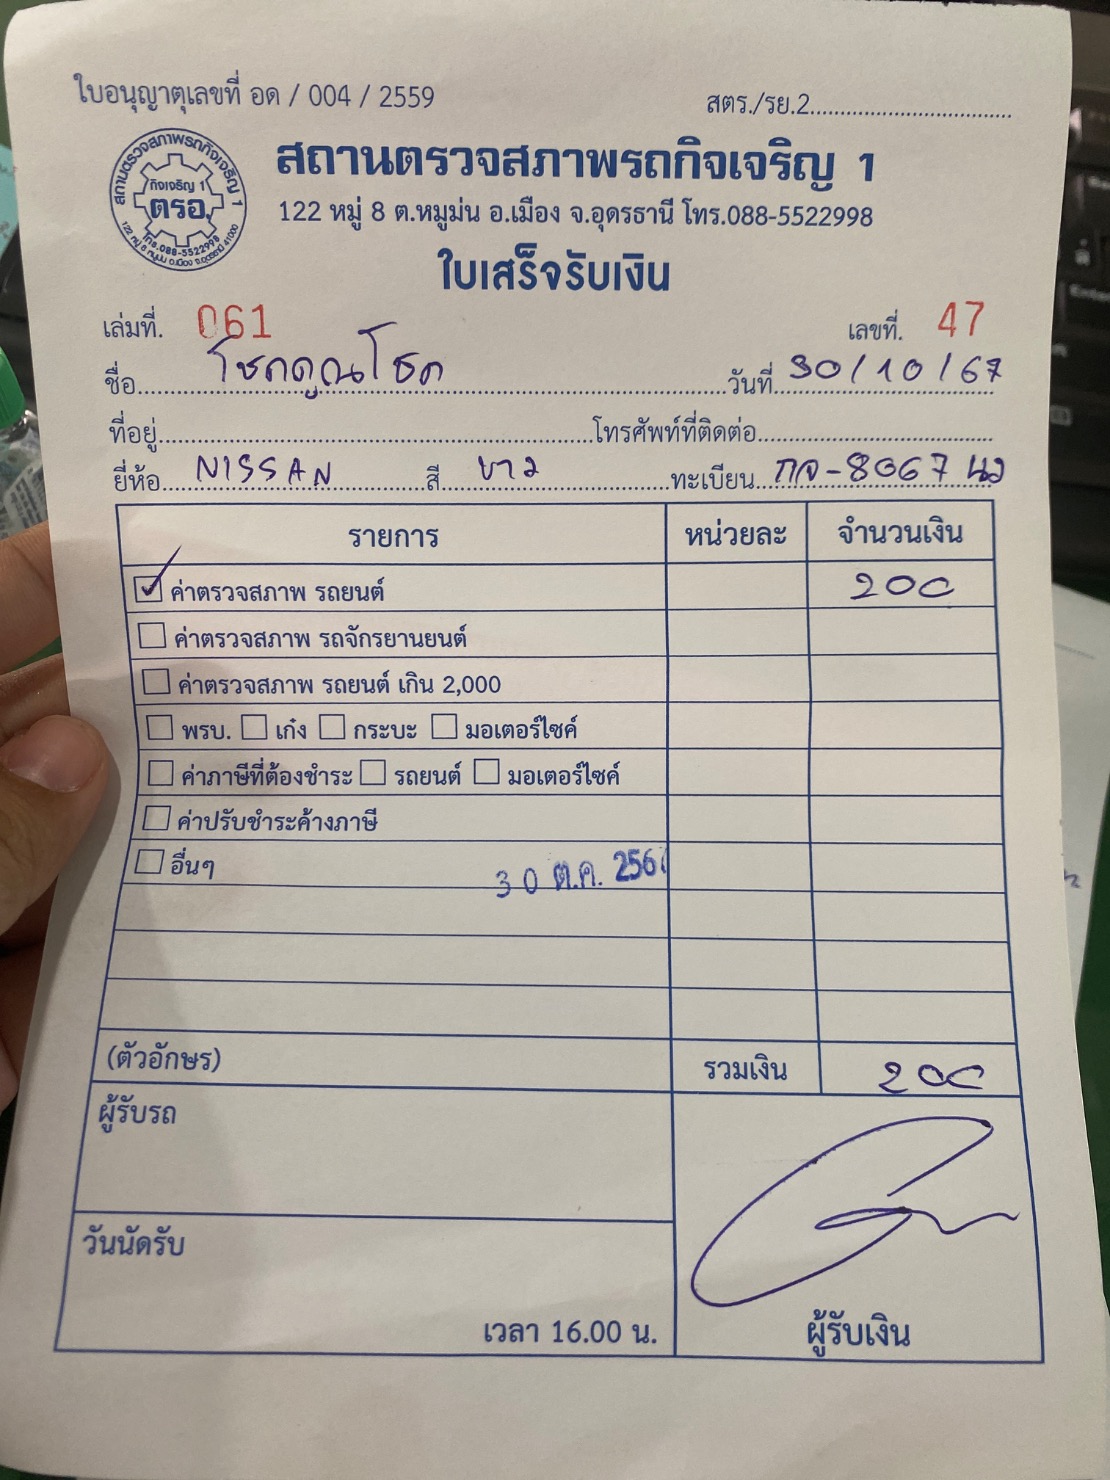 ใบอนุญาตุเลขที่ อด / 004 / 2559
สตร./รย.2
สถานตรวจสภาพรถกิจเจริญ 1
กิจเจริญ 1
ตรอ.
โทร.088-5522998
122 หมู่ 8 ต.หมูม่น อ.เมือง จ.อุดรธานี 41000
สถานตรวจสภาพรถกิจเจริญ 1
122 หมู่ 8 ต.หมูม่น อ.เมือง จ.อุดรธานี โทร.088-5522998
ใบเสร็จรับเงิน
เล่มที่. 061 เลขที่. 47
ชื่อ โชคคูณโชค วันที่ 30/10/67
ที่อยู่ โทรศัพท์ที่ติดต่อ
ยี่ห้อ NISSAN สี ขาว ทะเบียน กจ-8067 นว
รายการ หน่วยละ จำนวนเงิน
ค่าตรวจสภาพ รถยนต์ 200
ค่าตรวจสภาพ รถจักรยานยนต์
ค่าตรวจสภาพ รถยนต์ เกิน 2,000
พรบ. เก๋ง กระบะ มอเตอร์ไซค์
ค่าภาษีที่ต้องชำระ รถยนต์ มอเตอร์ไซค์
ค่าปรับชำระค้างภาษี
อื่นๆ
30 ต.ค. 2567
(ตัวอักษร) รวมเงิน 200
ผู้รับรถ
วันนัดรับ
เวลา 16.00 น.
ผู้รับเงิน